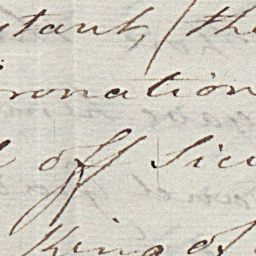 stant, the
ronation
off Sic
King of